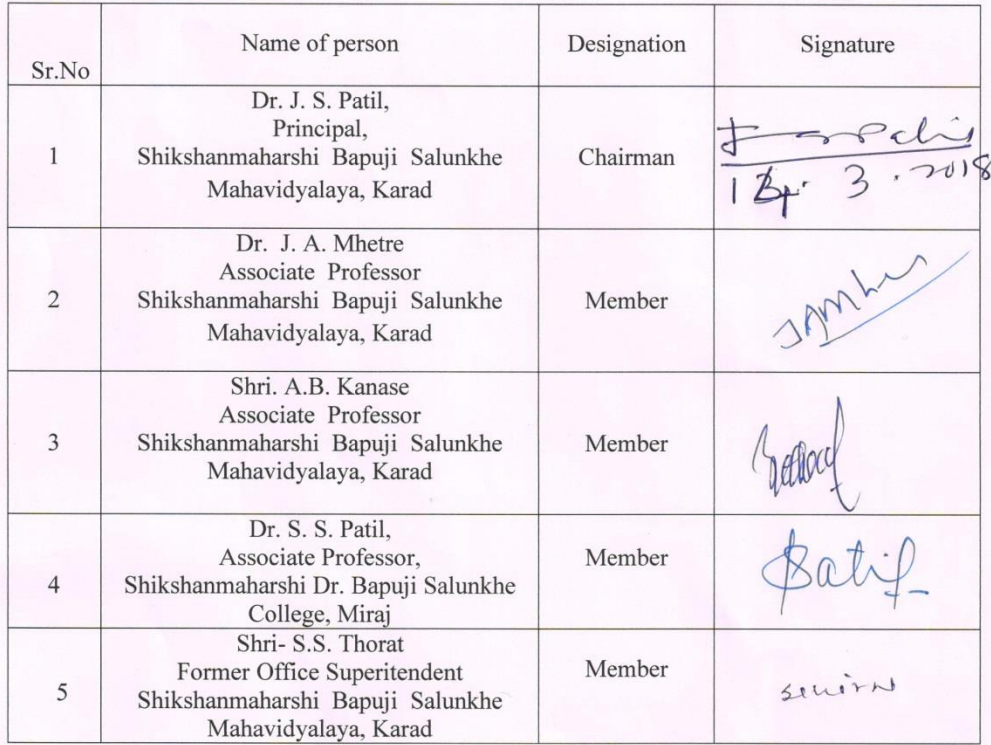 Sr.No
Name of person
Designation
Signature
1
Dr. J. S. Patil,
Principal,
Shikshanmaharshi Bapuji Salunkhe
Mahavidyalaya, Karad
Chairman
3.2018
2
Dr. J. A. Mhetre
Associate Professor
Shikshanmaharshi Bapuji Salunkhe
Mahavidyalaya, Karad
Member
3
Shri. A.B. Kanase
Associate Professor
Shikshanmaharshi Bapuji Salunkhe
Mahavidyalaya, Karad
Member
4
Dr. S. S. Patil,
Associate Professor,
Shikshanmaharshi Dr. Bapuji Salunkhe
College, Miraj
Member
5
Shri- S.S. Thorat
Former Office Superitendent
Shikshanmaharshi Bapuji Salunkhe
Mahavidyalaya, Karad
Member